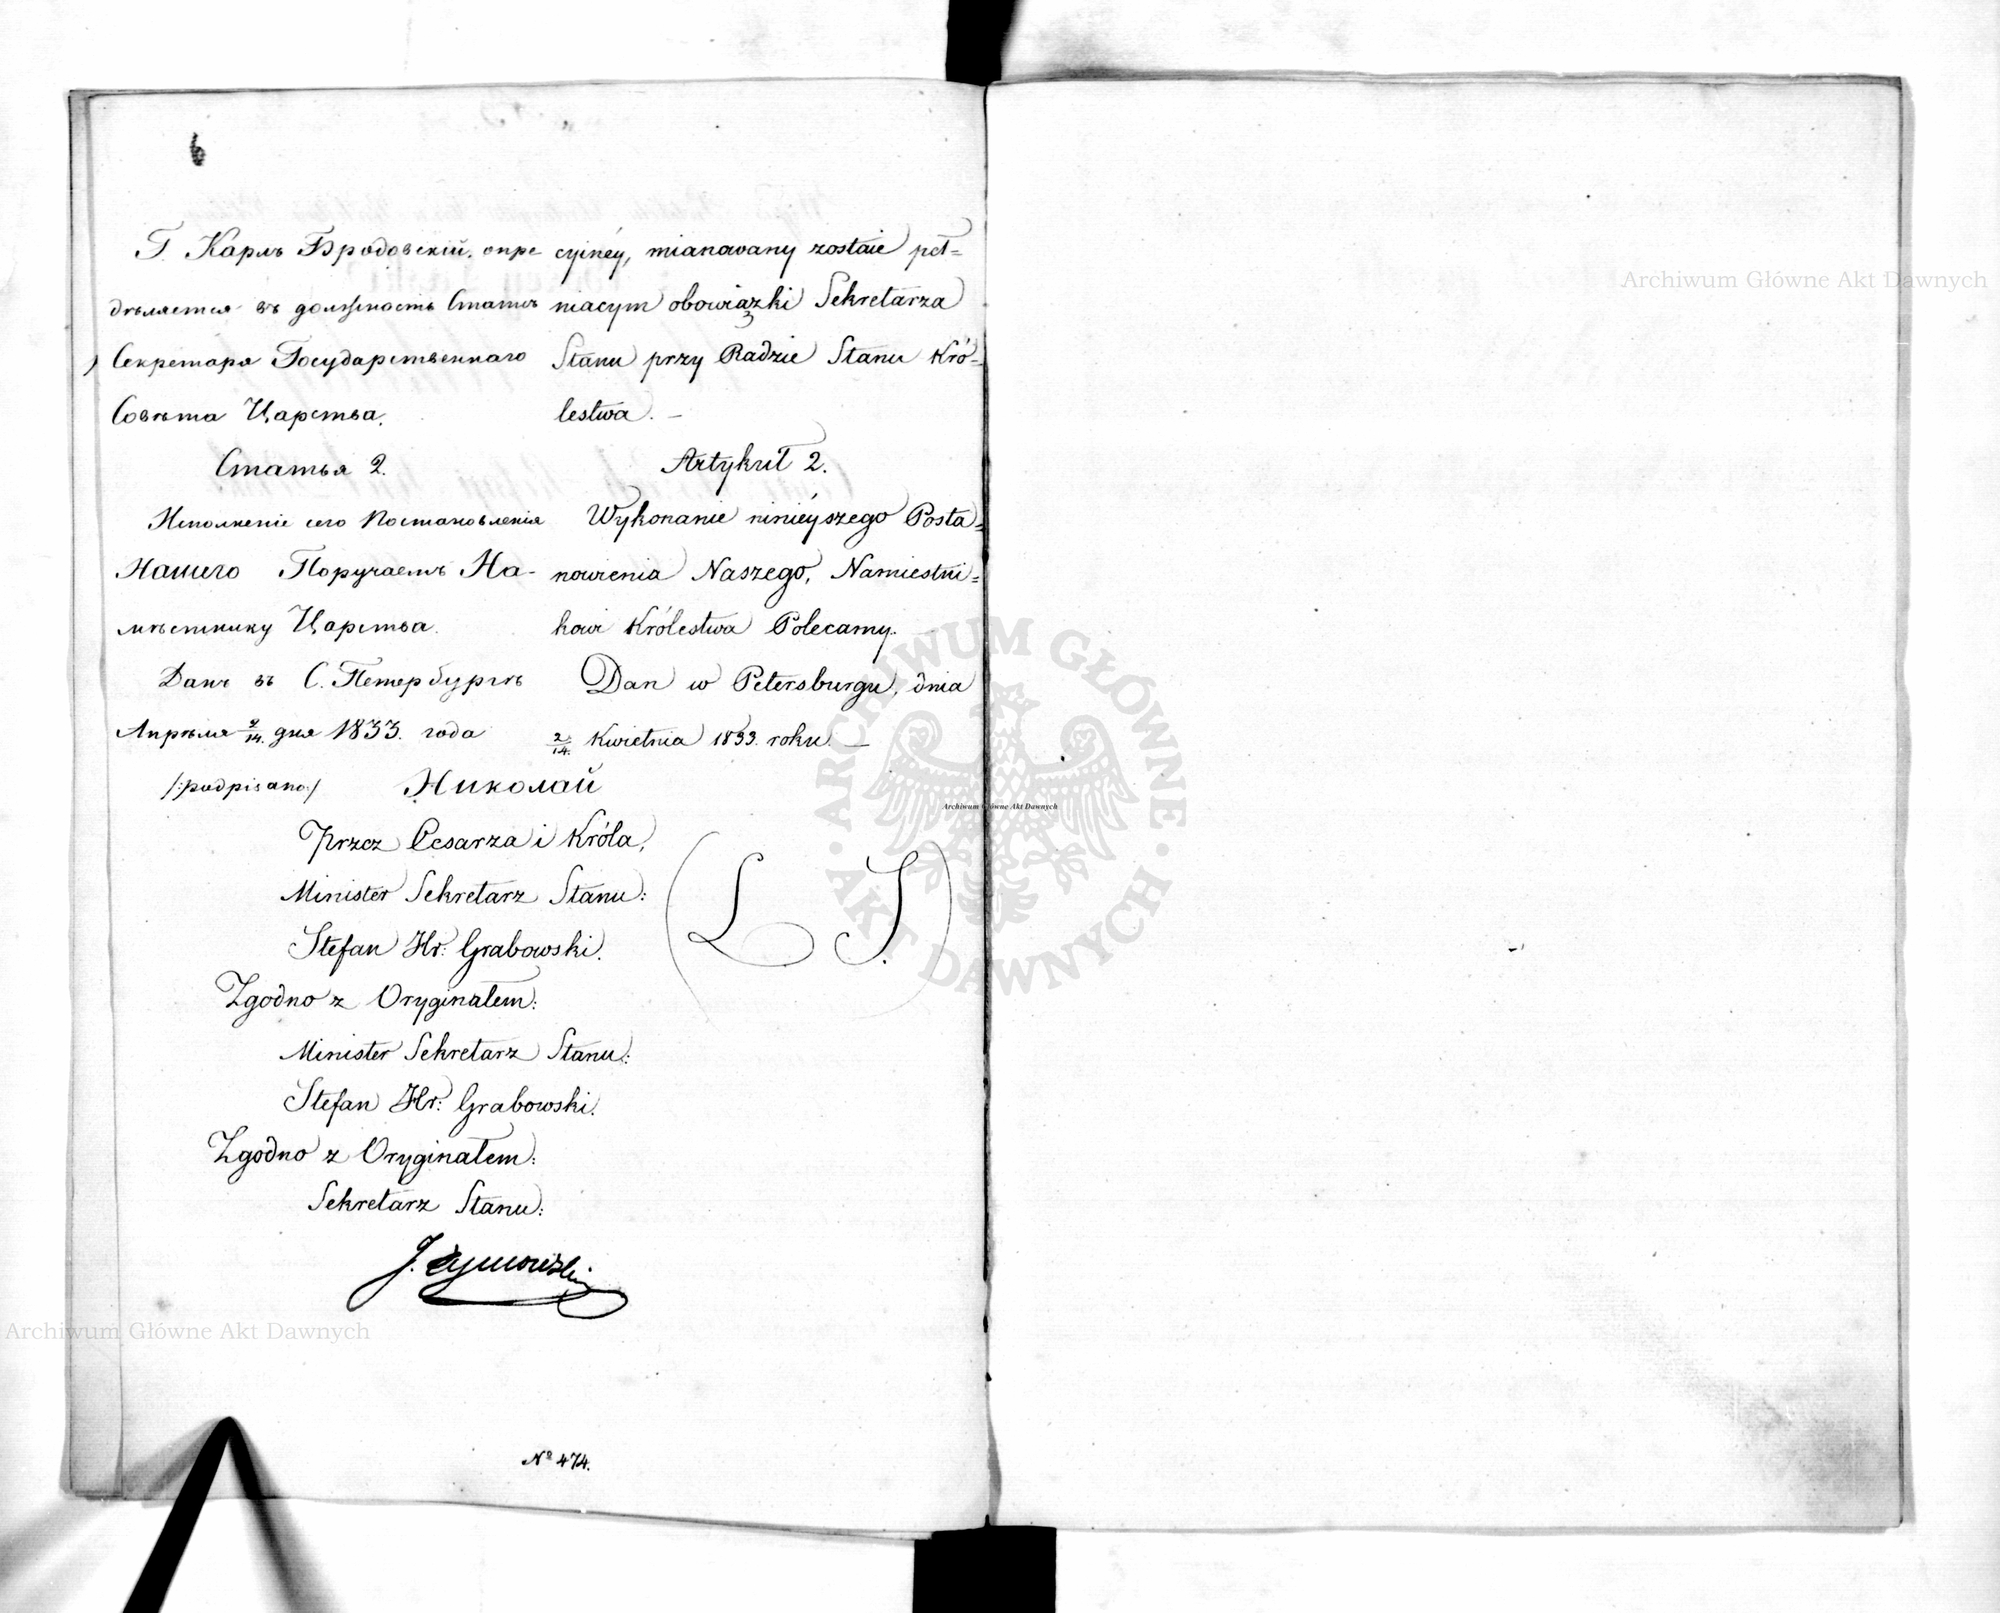 6
Г. Карлъ Бродовскій, опре
дѣляется въ должность Статсъ
Секретаря Государственнаго
Совѣта Царства.
Статья 2.
Исполненіе сего Постановленія
Нашего Поручаемъ На-
мѣстнику Царства.
Данъ въ С. Петербургѣ
Апрѣля 2/14. дня 1833. года
cyinéy, mianowany zostaie peł=
niącym obowiązki Sekretarza
Stanu przy Radzie Stanu Kró=
lestwa. —
Artykuł 2.
Wykonanie ninieyszego Posta=
nowienia Naszego, Namiestni=
kowi Królestwa Polecamy.
Dan w Petersburgu, dnia
2/14. Kwietnia 1833. roku. —
/:podpisano:/ Николай
Przez Cesarza i Króla,
Minister Sekretarz Stanu:
Stefan Hr: Grabowski.
(L. S.)
Zgodno z Oryginałem:
Minister Sekretarz Stanu:
Stefan Hr: Grabowski.
Zgodno z Oryginałem:
Sekretarz Stanu:
Nº 474.
Archiwum Główne Akt Dawnych
Archiwum Główne Akt Dawnych
Archiwum Główne Akt Dawnych
ARCHIWUM GŁÓWNE · AKT DAWNYCH ·